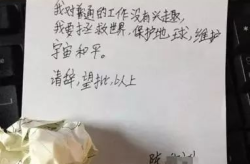 我对普通的工作没有兴趣,
我要拯救世界,保护地球,维护
宇宙和平。
请辞,望批,以上